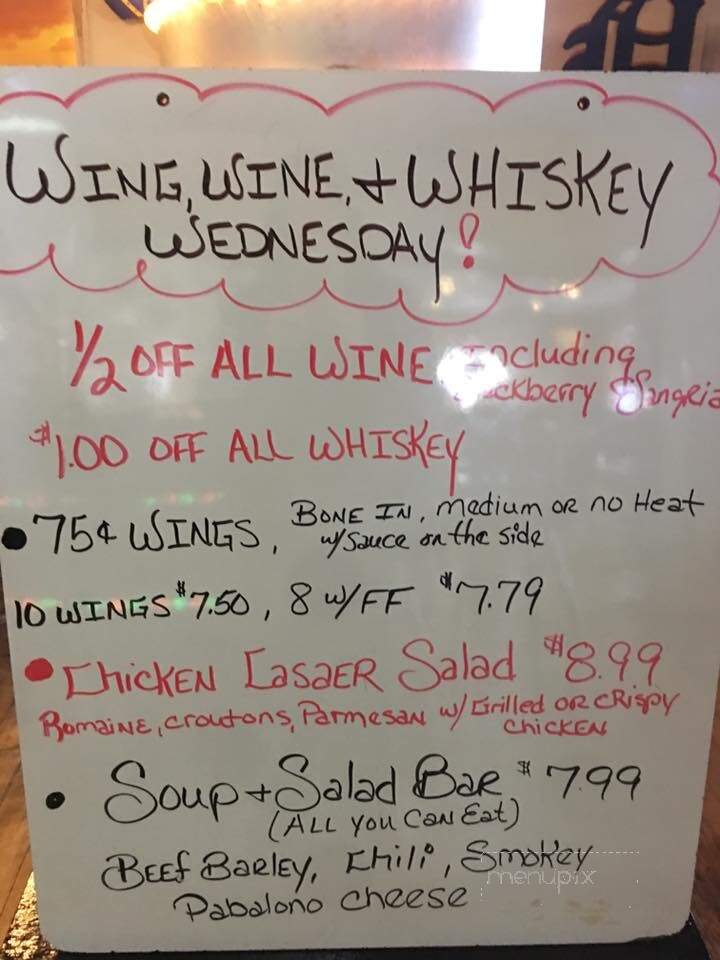 WING, WINE, + WHISKEY
WEDNESDAY!
1/2 OFF ALL WINE including
Sangria
$1.00 OFF ALL WHISKEY
• 75¢ WINGS, BONE IN, medium OR no Heat
w/sauce on the side
10 WINGS $7.50, 8 w/FF $7.79
• CHICKEN CASAER Salad $8.99
Romaine, croutons, Parmesan w/ Grilled OR CRISPY
CHICKEN
• Soup + Salad Bar $7.99
(ALL YOU CAN Eat)
BEEF BARLEY, Chili, Smokey
Pabalono cheese
menupix